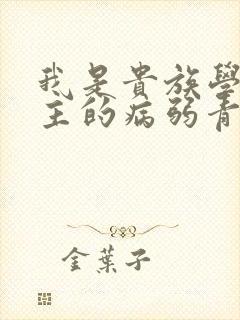 我是貴族學
主的病弱青
金葉子